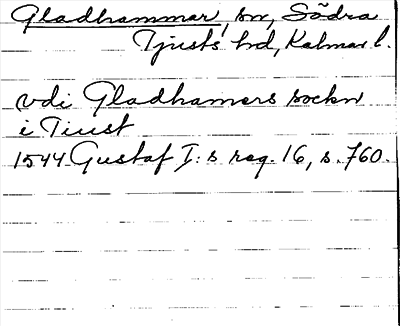 Gladhammar, sn, Södra
Tjusts hd, Kalmar l.
vdi Gladhamers sockn
i Tiust
1544 Gustaf I:s reg. 16, s. 760.